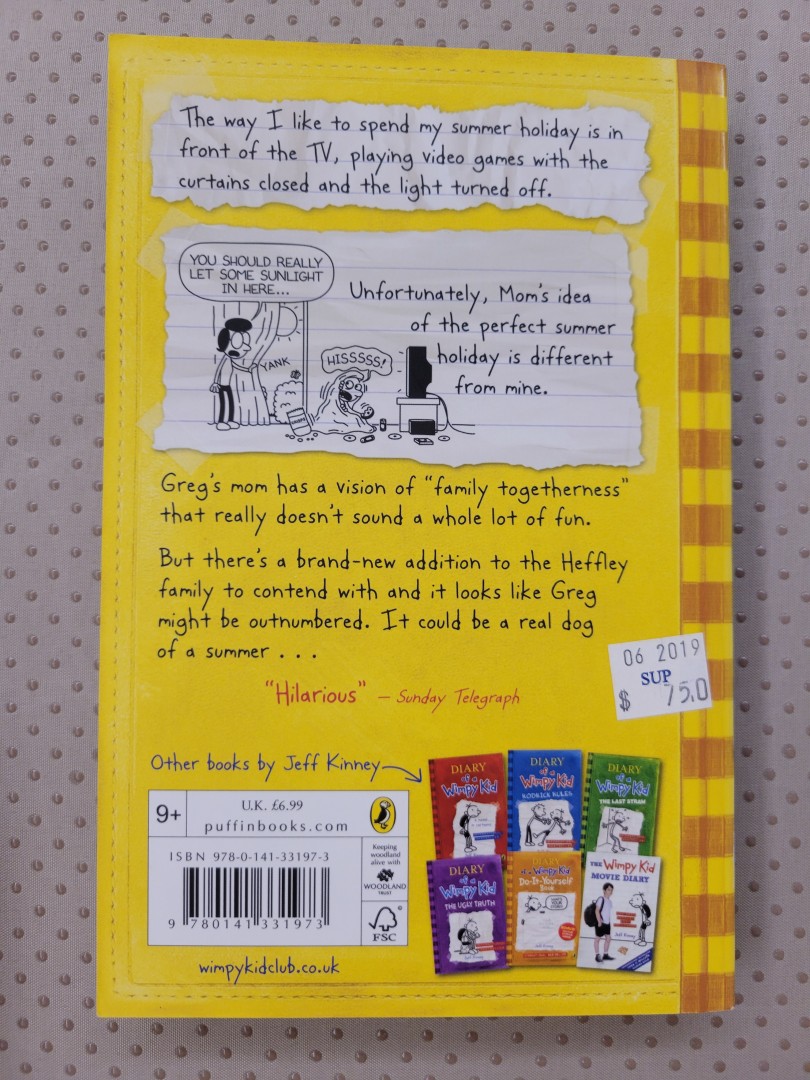 The way I like to spend my summer holiday is in
front of the TV, playing video games with the
curtains closed and the light turned off.
YOU SHOULD REALLY
LET SOME SUNLIGHT
IN HERE...
YANK
HISSSSS!
Unfortunately, Mom's idea
of the perfect summer
holiday is different
from mine.
Greg's mom has a vision of "family togetherness"
that really doesn't sound a whole lot of fun.
But there's a brand-new addition to the Heffley
family to contend with and it looks like Greg
might be outnumbered. It could be a real dog
of a summer . . .
"Hilarious" – Sunday Telegraph
06 2019
SUP
$ 75.0
Other books by Jeff Kinney
9+
U.K. £6.99
puffinbooks.com
ISBN 978-0-141-33197-3
9 780141 331973
Keeping
woodland
alive with
WOODLAND
TRUST
FSC
wimpykidclub.co.uk
DIARY
of a
Wimpy Kid
DIARY
of a
Wimpy Kid
RODRICK RULES
DIARY
of a
Wimpy Kid
THE LAST STRAW
DIARY
of a
Wimpy Kid
THE UGLY TRUTH
DIARY
of a Wimpy Kid
Do-It-Yourself
Book
THE Wimpy Kid
MOVIE DIARY
Jeff Kinney